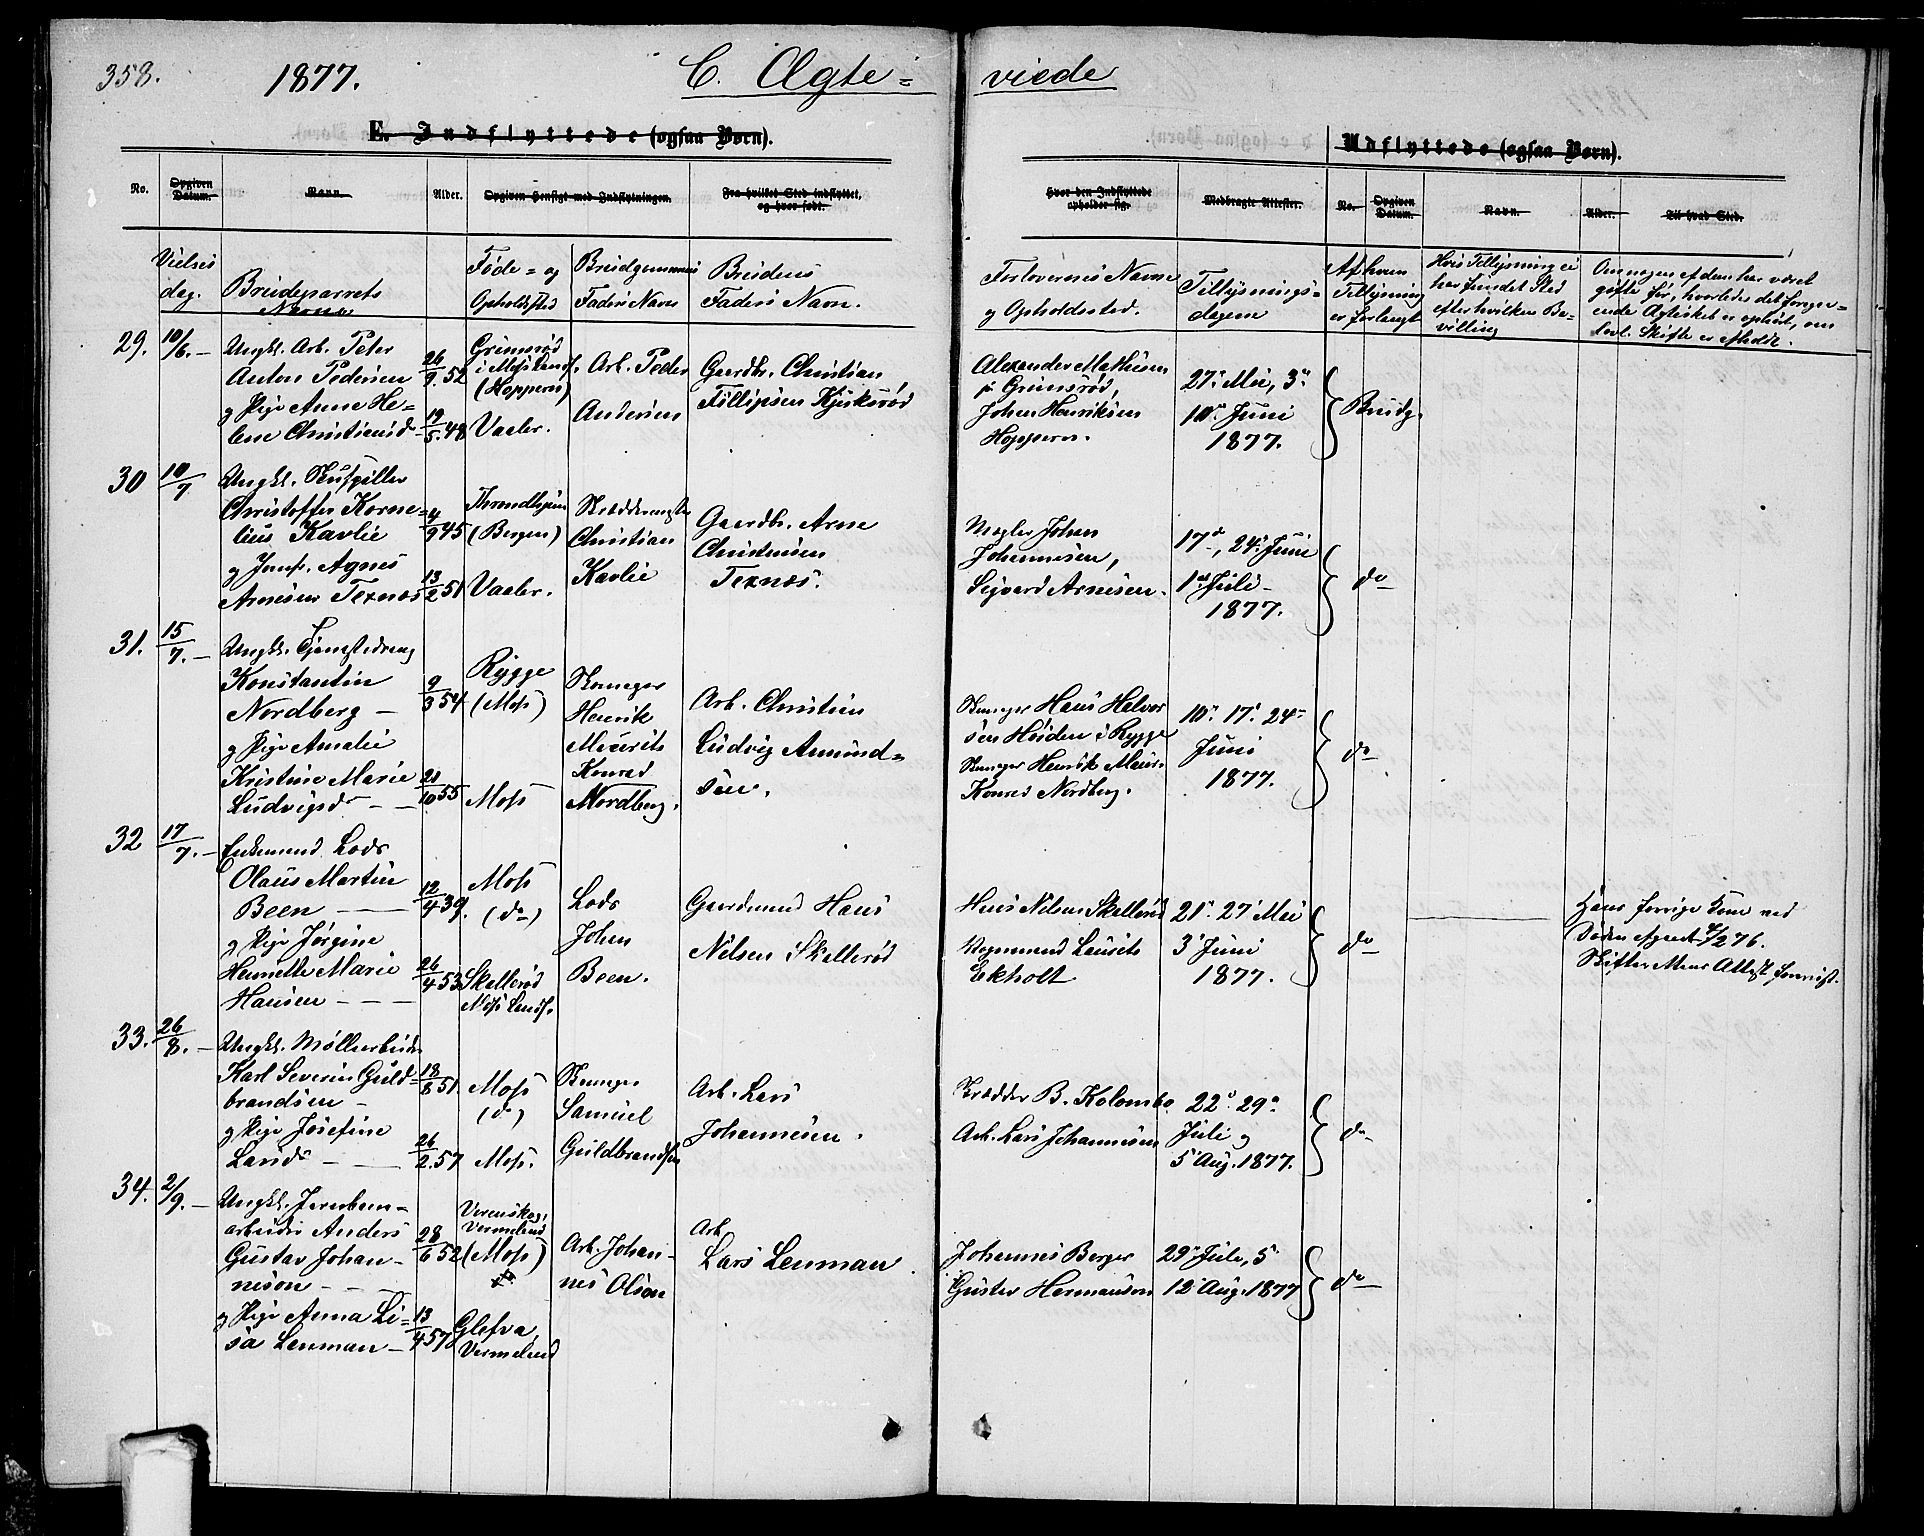 358.
1877.
C. Ægte=
viede
E. Indflyttede (ogsaa Børn).
Udflyttede (ogsaa Børn).
No.
Opgiven Datum.
Navn.
Alder.
Opgiven Hensigt med Indflytningen.
Fra hvilket Sted indflyttet, og hvor født.
Hvor den Indflyttede opholder sig.
Medbragte Attester.
No.
Opgiven Datum.
Navn.
Alder.
Til hvad Sted.
Vielses dag.
Brudeparrets Navne
Føde= og Opholdssted
Brudgommens Faders Navn
Brudens Faders Navn.
Forlovernes Navne og Opholdssted.
Tillysnings=dagene
Af hvem Tillysning er forlangt
Hvis Tillysning ei har fundet Sted efter hvilken Bevilling
29. 10/6. –
Ungkl. Arb. Peter
Anton Pedersen
og Pige Anne He=
lene Christiansd.
26/9 52
19/5. 48
Grimsrød
i Moss Landsf.
(Hoppern)
Vaaler.
Arb. Peder
Andersen
Gaardbr. Christian
Fillipsen Kjerksrød
Alexander Mathisen
p. Grimsrød,
Johan Henriksen
Hoppern.
27. Mai, 3.
10. Juni
1877.
Brudg.
30 10/7
Ungkl. Skuespiller
Christoffer Korne=
lius Kavlie
og Jomf. Agnes
Arnesen Texnæs
4/9 45
13/2 51
Throndhjem
(Bergen)
Vaaler.
Skræddermester
Christian
Kavlie
Gaardbr. Arne
Christensen
Texnæs.
Mægler Johan
Johannesen,
Sigvard Arnesen.
17de, 24. Juni
1ste Juli
1877.
do
31. 15/7. –
Ungkl. Tjenestedreng
Konstantin
Nordberg –
og Pige Amalie
Kristine Marie
Ludvigsd. –
9/3 54
21/10 55
Rygge
(Moss)
Moss
Skomager
Henrik
Mauritz
Konrad
Nordberg.
Arb. Christian
Ludvig Amund=
sen.
Skomager Hans Halvor
sen Høiden i Rygge
Skomager Henrik Maur.
Konrad Nordberg.
10. 17. 24
Juni
1877.
do
32 17/7. –
Enkemand Lods
Olaus Martin
Been –
og Pige Jørgine
Henriette Marie
Hansen –
12/4 39.
26/4 53
Moss
(do)
Skallerød
Moss Landsf.
Lods
Johan
Been.
Gaardmand Hans
Nilsen Skallerød
Hans Nilsen Skallerød
Vognmand Laurits
Ekholt
21. 27. Mai
3. Juni
1877.
do
Hans forrige Kone ved
Døden afgaaet 4/2 76.
33. 26/8. –
Ungkl. Møllerarbeider
Karl Severin Guld=
brandsen –
og Pige Josefine
Larsd. –
18/8 51
26/2. 57
Moss
(do)
Moss.
Skomager
Samuel
Guldbrandsen
Arb. Lars
Johannesen.
Skrædder B. Kolombo
Arb. Lars Johannesen
22. 29.
Juli og
5 Aug. 1877.
do
34. 2/9. –
Ungkl. Jernbane=
arbeider Anders
Gustav Johan=
neson –
og Pige Anna Li=
sa Lenman –
28/6 52
13/4 57
Vermeland
(Moss)
Glafva,
Vermeland
Arb. Johan=
nes Olson
Arb.
Lars Lenman.
Johannes Berger
Gustav Hermanson
29. Juli, 5.
12 Aug. 1877
do